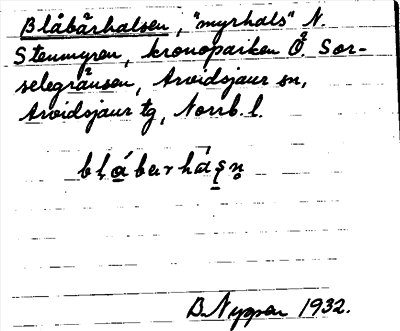 Blåbärhalsen, "myrhals" N.
Stenmyren, kronoparken Ö. Sor-
selegränsen, Arvidsjaur sn,
Arvidsjaur tg, Norrb. l.
B. Nyman 1932.